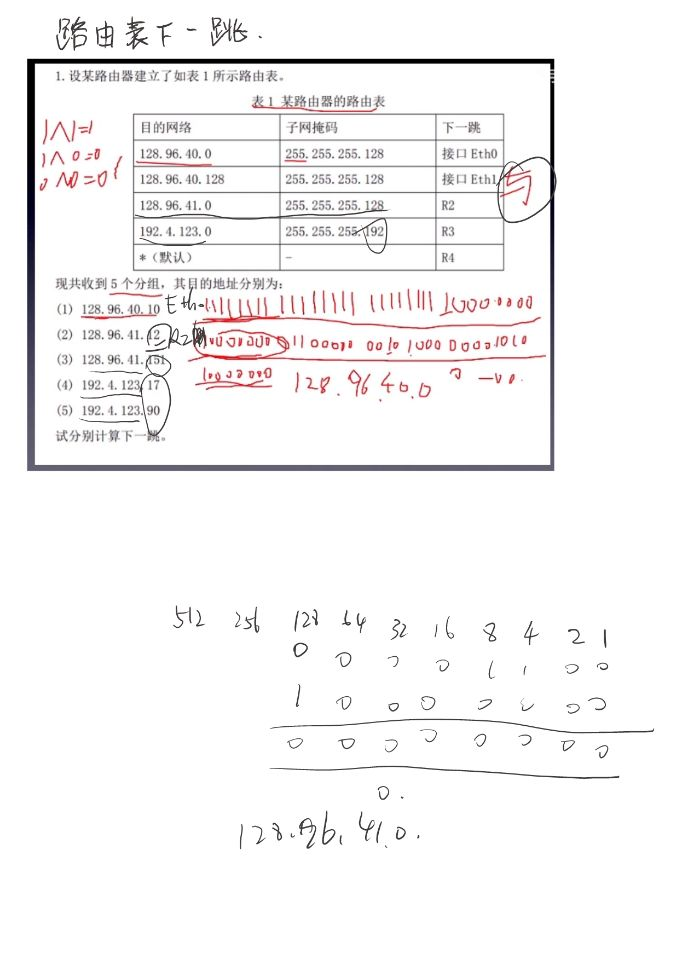 路由表下一跳.
1. 设某路由器建立了如表 1 所示路由表。
表 1 某路由器的路由表
1∧1=1
1∧0=0
0∧0=0
目的网络 子网掩码 下一跳
128.96.40.0 255.255.255.128 接口 Eth0
128.96.40.128 255.255.255.128 接口 Eth1
128.96.41.0 255.255.255.128 R2
192.4.123.0 255.255.255.192 R3
*（默认） - R4
与
现共收到 5 个分组，其目的地址分别为：
(1) 128.96.40.10 Eth0 11111111 11111111 11111111 10000000
(2) 128.96.41.12 R2
(3) 128.96.41.151
(4) 192.4.123.17 10000000 128.96.40.0
(5) 192.4.123.90
试分别计算下一跳。
512 256 128 64 32 16 8 4 2 1
0 0 0 0 1 1 0 0
1 0 0 0 0 0 0 0
0 0 0 0 0 0 0 0
0.
128.96.41.0.